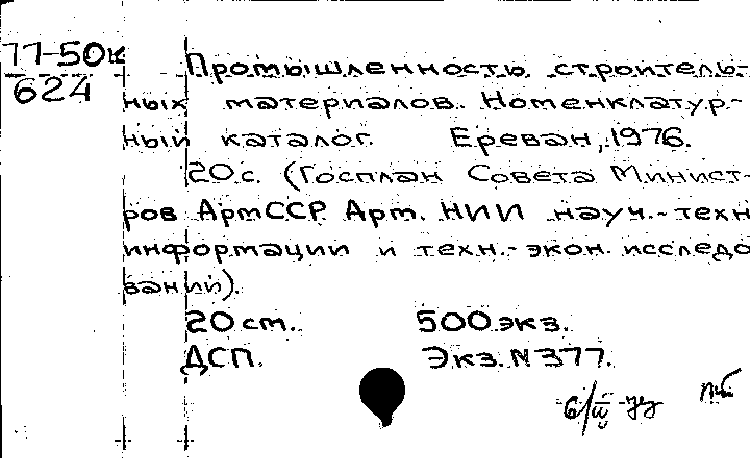 77-50к
624
Промышленность строитель-
ных материалов. Номенклатур-
ный каталог. Ереван, 1976.
20 с. (Госплан Совета Минист-
ров АрмССР. Арм. НИИ науч.-техн
информации и техн.-экон. исследо
ваний).
20 см. 500 экз.
ДСП. Экз. N 377.
6/IV